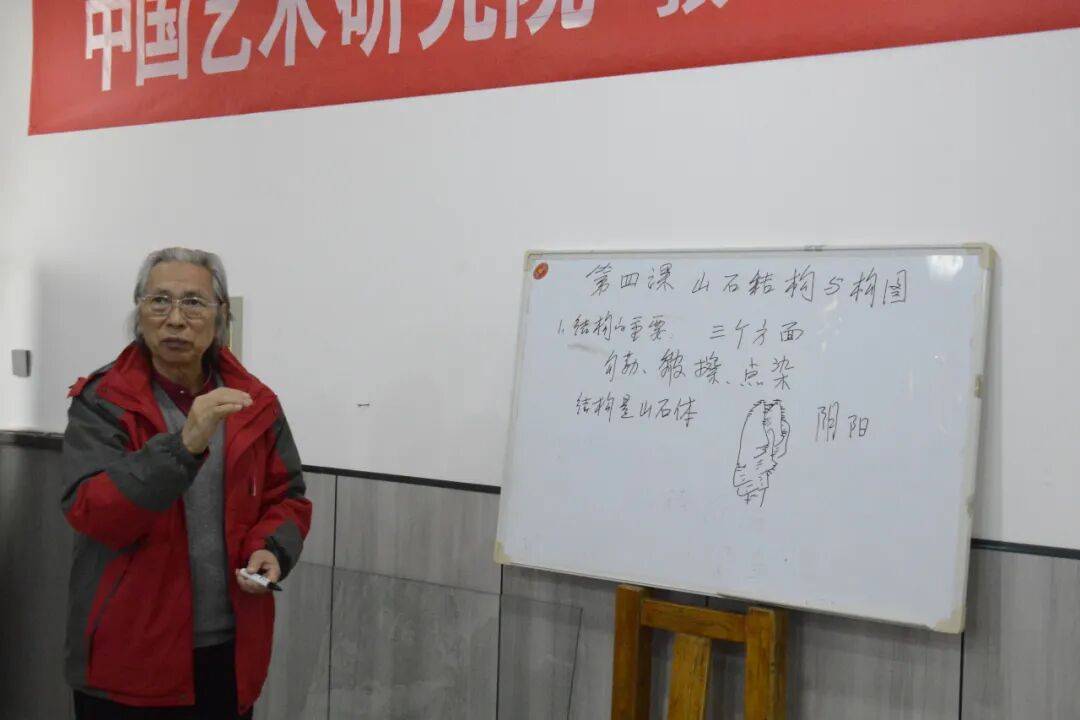 中国艺术研究院
第四课 山石结构与构图
1、结构的重要 三个方面
勾勒、皴擦、点染
结构是山石体
阴阳